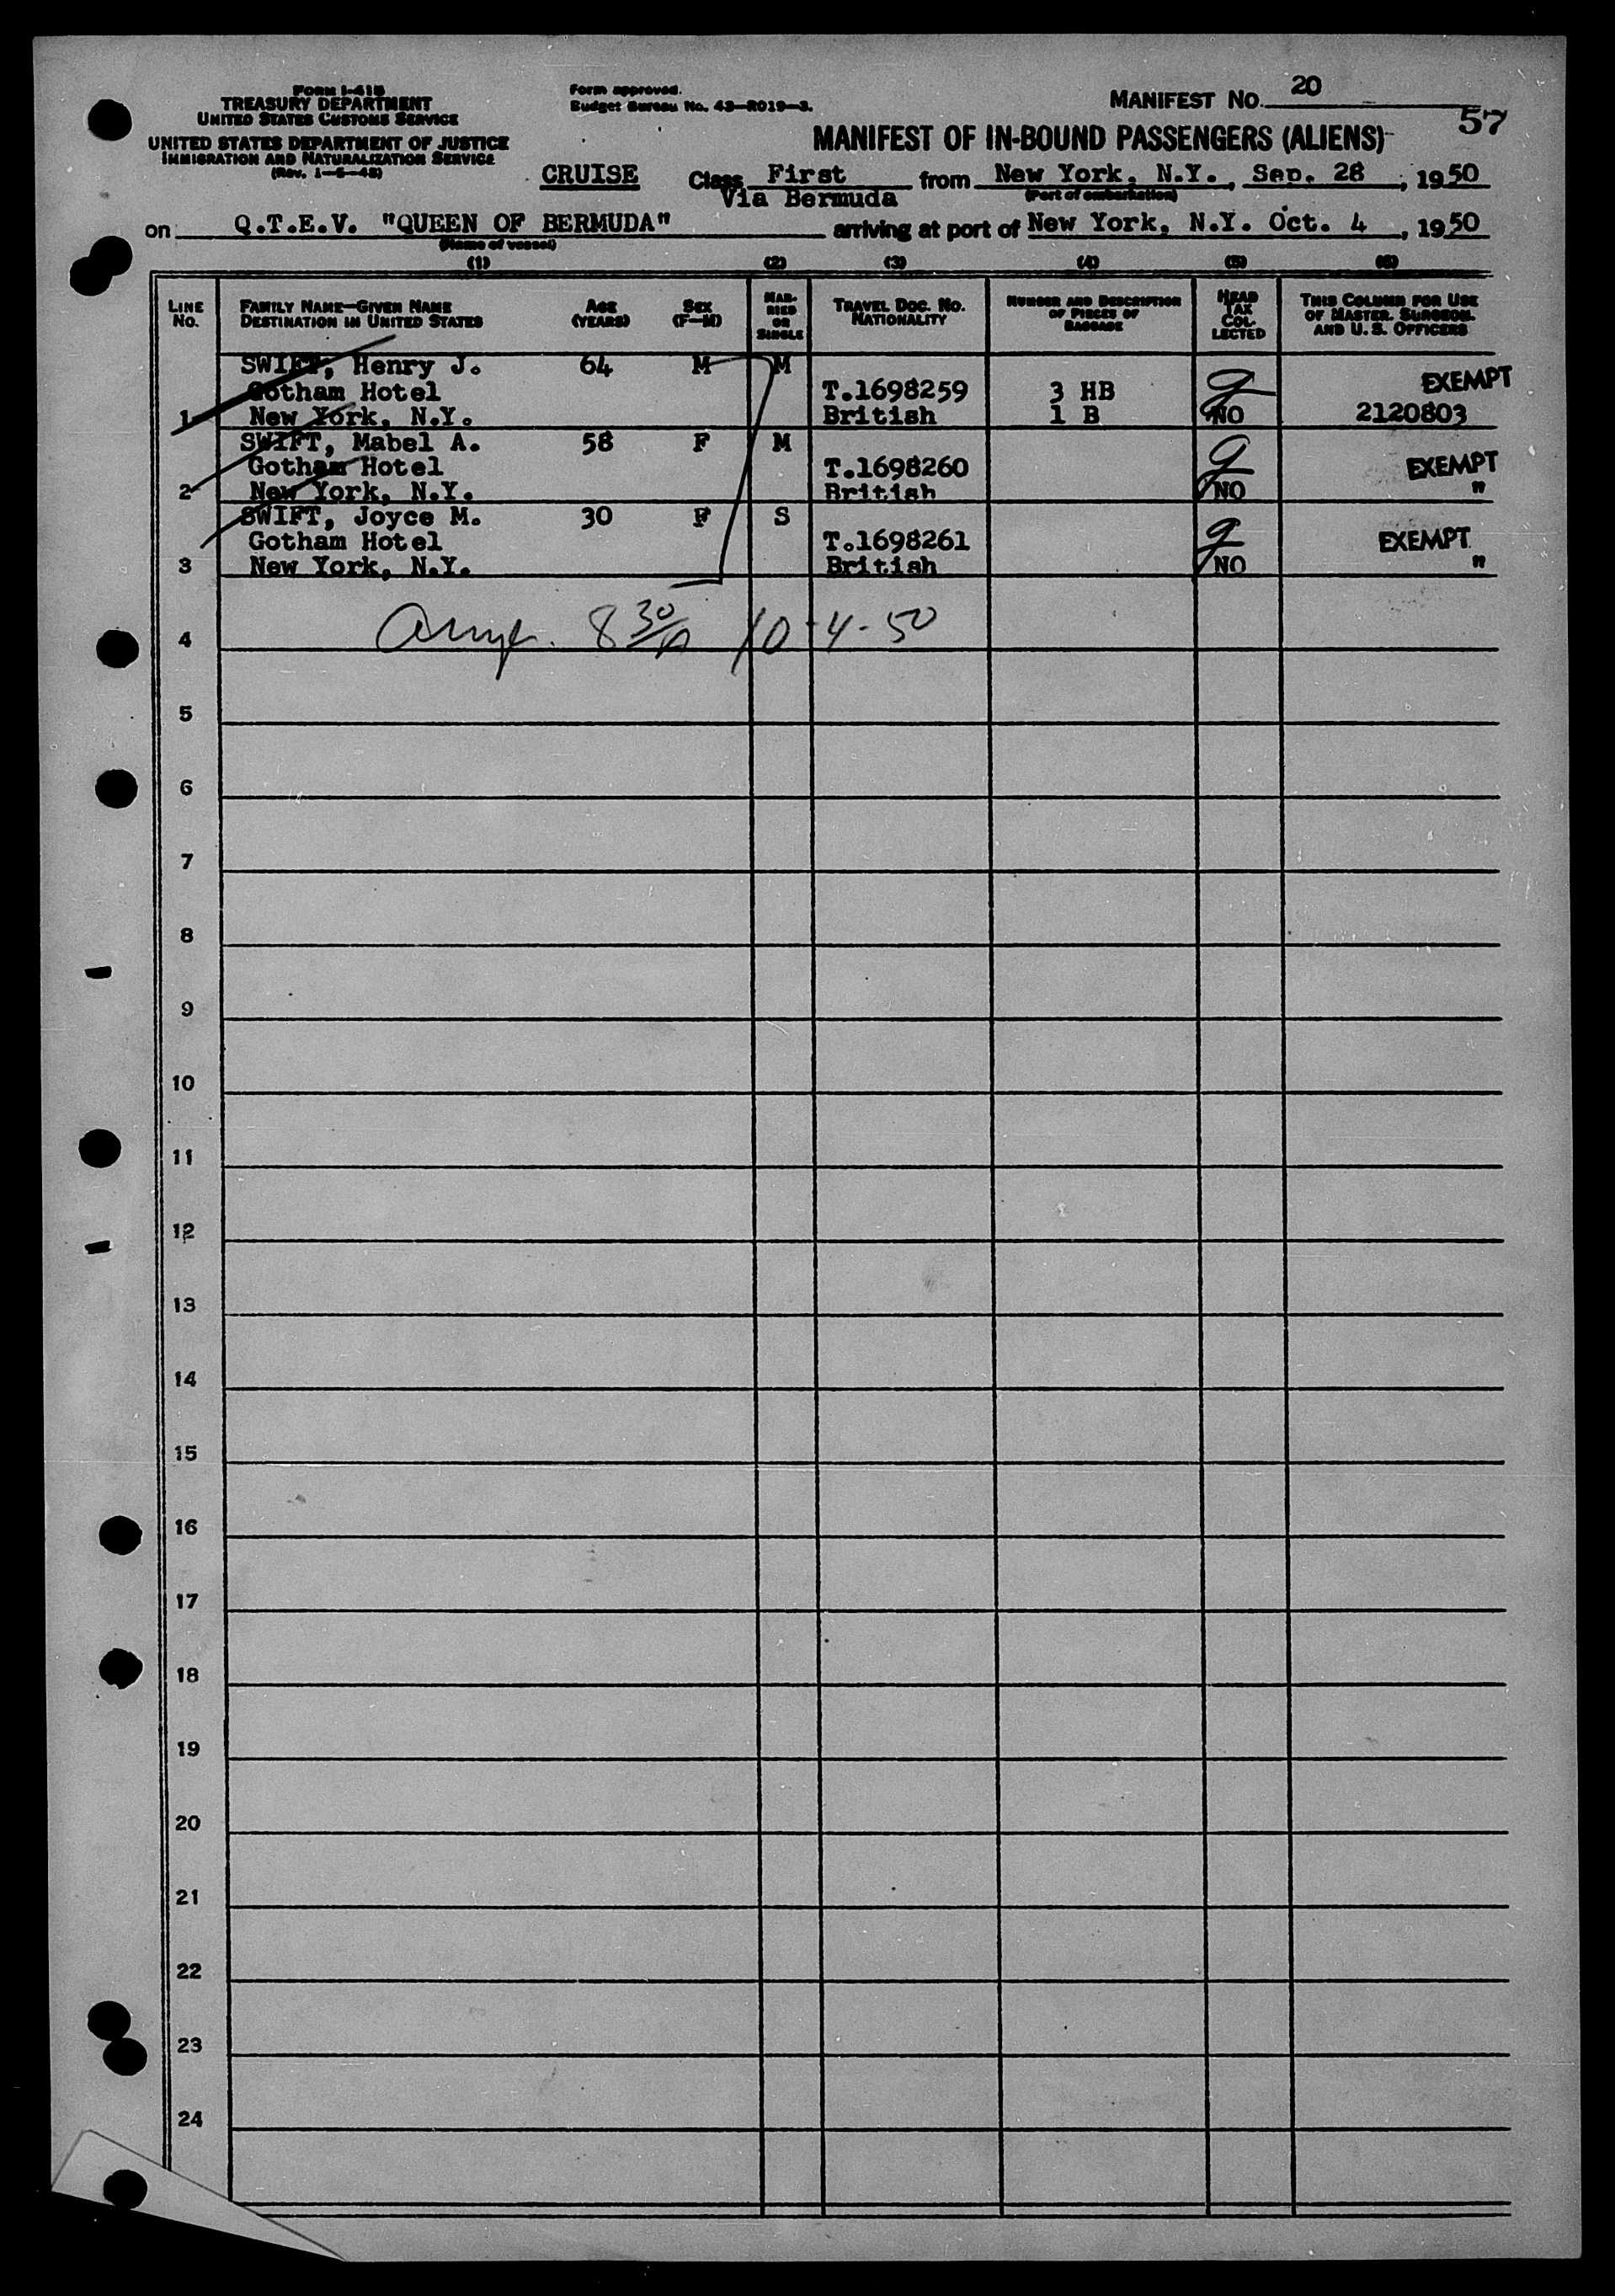 Form I-418
TREASURY DEPARTMENT
UNITED STATES CUSTOMS SERVICE
UNITED STATES DEPARTMENT OF JUSTICE
IMMIGRATION AND NATURALIZATION SERVICE
Form approved.
Budget Bureau No. 43—R019—3.
MANIFEST NO. 20
57
MANIFEST OF IN-BOUND PASSENGERS (ALIENS)
CRUISE Class First from New York, N.Y., Sep. 28, 1950
Via Bermuda (Port of embarkation)
on Q.T.E.V. "QUEEN OF BERMUDA" arriving at port of New York, N.Y. Oct. 4, 1950
(Name of vessel)
(1) (2) (3) (4) (5) (6)
LINE NO.
FAMILY NAME—GIVEN NAME
DESTINATION IN UNITED STATES
AGE (YEARS)
SEX (F—M)
MARRIED OR SINGLE
TRAVEL DOC. NO.
NATIONALITY
NUMBER AND DESCRIPTION
OF PIECES OF
BAGGAGE
HEAD
TAX
COLLECTED
THIS COLUMN FOR USE
OF MASTER, SURGEON,
AND U. S. OFFICERS
SWIFT, Henry J. 64 M M
Gotham Hotel T.1698259 3 HB EXEMPT
1 New York, N.Y. British 1 B NO 2120803
SWIFT, Mabel A. 58 F M
Gotham Hotel T.1698260 EXEMPT
2 New York, N.Y. British NO "
SWIFT, Joyce M. 30 F S
Gotham Hotel T.1698261 EXEMPT
3 New York, N.Y. British NO "
4 8 30/A 10-4-50
5
6
7
8
9
10
11
12
13
14
15
16
17
18
19
20
21
22
23
24